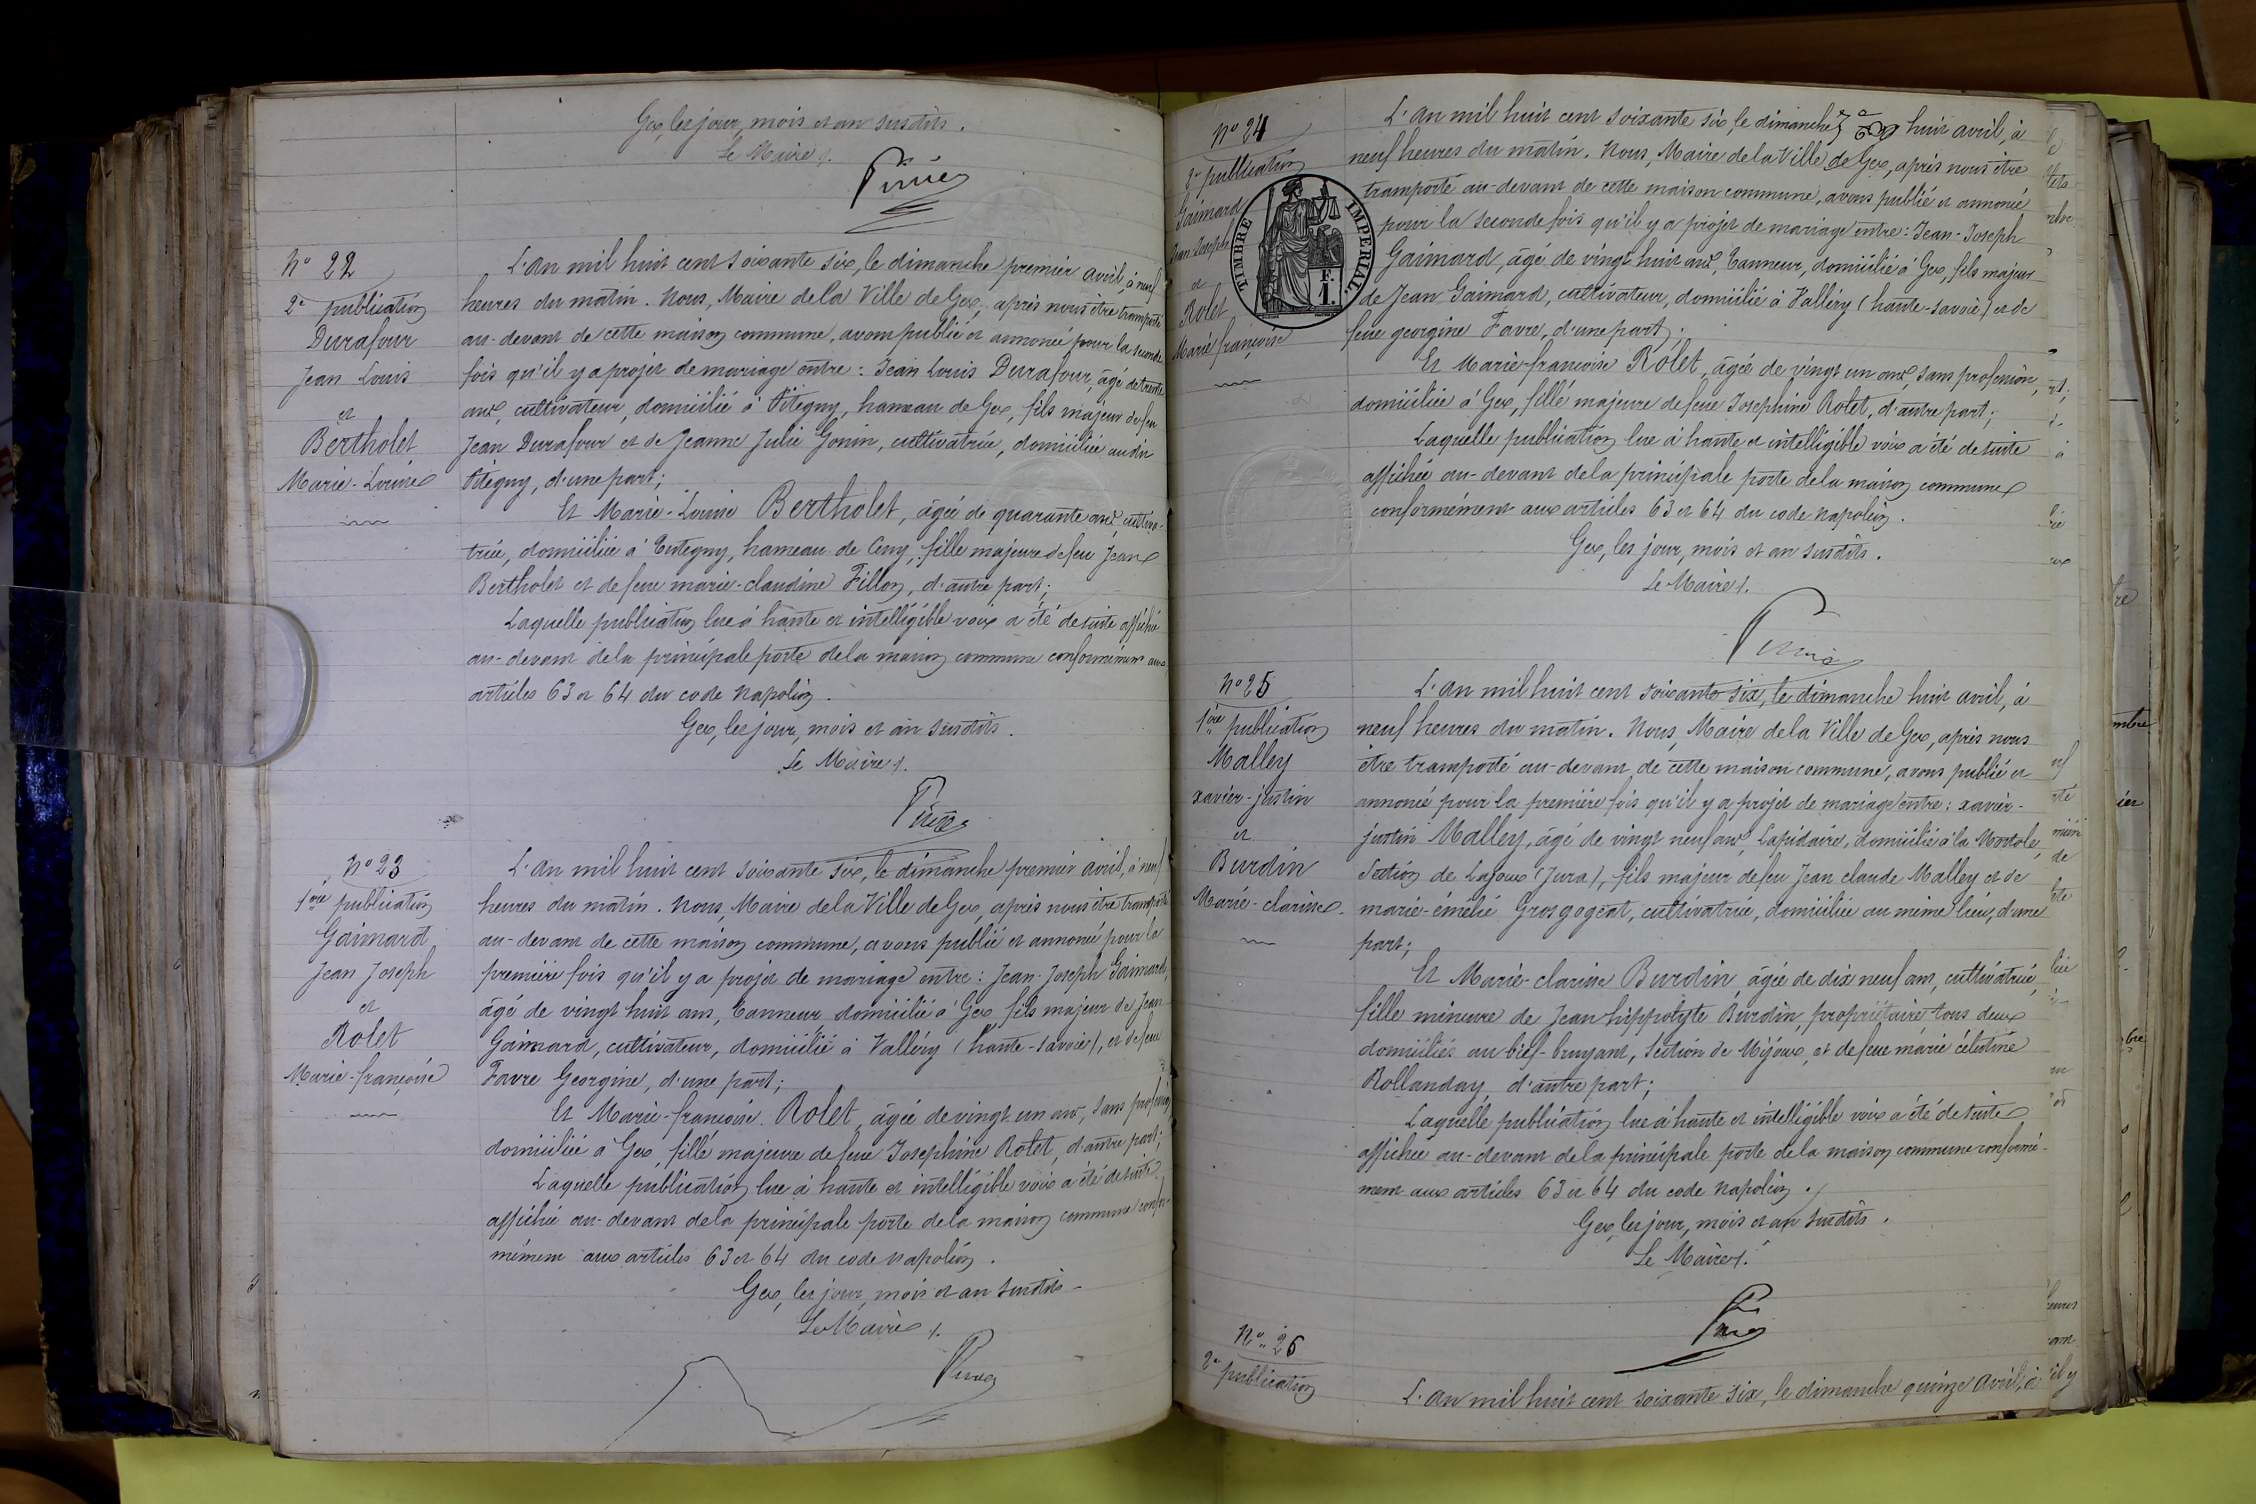 Gex, les jour, mois et an susdits.
Le Maire /.
N° 22
2e publication
Durafour
Jean Louis
et
Bertholet
Marie-Louise
L'An mil huit cent soixante six, le dimanche premier avril, à neuf
heures du matin. Nous, Maire de la Ville de Gex, après nous être transporté
au-devant de cette maison commune, avons publié et annoncé pour la seconde
fois qu'il y a projet de mariage entre : Jean Louis Durafour, âgé de trente
ans, cultivateur, domicilié à Pitegny, hameau de Gex, fils majeur de feu
Jean Durafour et de Jeanne Julie Gonin, cultivatrice, domiciliée audit
Pitegny, d'une part ;
Et Marie-Louise Bertholet, âgée de quarante ans, cultiva-
trice, domiciliée à Tutegny, hameau de Cessy, fille majeure de feu Jean
Bertholet et de feue marie-claudine Fillon, d'autre part ;
Laquelle publication lue à haute et intelligible voix a été de suite affichée
au-devant de la principale porte de la maison commune conformément aux
articles 63 et 64 du code Napoléon.
Gex, les jour, mois et an susdits.
Le Maire /.
N° 23
1ère publication
Gaimard
Jean Joseph
et
Rolet
Marie-françoise
L'An mil huit cent soixante six, le dimanche premier avril, à neuf
heures du matin. Nous, Maire de la Ville de Gex, après nous être transporté
au-devant de cette maison commune, avons publié et annoncé pour la
première fois qu'il y a projet de mariage entre : Jean-Joseph Gaimard,
âgé de vingt huit ans, Tanneur, domicilié à Gex, fils majeur de Jean
Gaimard, cultivateur, domicilié à Valléry (haute-savoie), et de feue
Favre Georgine, d'une part ;
Et Marie-françoise Rolet, âgée de vingt un ans, sans profession
domiciliée à Gex, fille majeure de feue Josephine Rolet, d'autre part ;
Laquelle publication lue à haute et intelligible voix a été de suite
affichée au-devant de la principale porte de la maison commune confor-
mément aux articles 63 et 64 du code Napoléon.
Gex, les jour, mois et an susdits.
Le Maire /.
N° 24
2e publication
Gaimard
Jean-Joseph
et
Rolet
Marie françoise
TIMBRE IMPERIAL.
L'An mil huit cent soixante six, le dimanche huit avril, à
neuf heures du matin. Nous, Maire de la Ville de Gex, après nous être
transporté au-devant de cette maison commune, avons publié et annoncé
pour la seconde fois qu'il y a projet de mariage entre : Jean-Joseph
Gaimard, âgé de vingt huit ans, Tanneur, domicilié à Gex, fils majeur
de Jean Gaimard, cultivateur, domicilié à Valléry (haute-savoie) et de
feue georgine Favre, d'une part ;
Et Marie-françoise Rolet, âgée de vingt un ans, sans profession,
domiciliée à Gex, fille majeure de feue Josephine Rolet, d'autre part ;
Laquelle publication lue à haute et intelligible voix a été de suite
affichée au-devant de la principale porte de la maison commune
conformément aux articles 63 et 64 du code Napoléon.
Gex, les jour, mois et an susdits.
Le Maire /.
N° 25
1ère publication
Malley
xavier-justin
et
Burdin
Marie-clarisse
L'An mil huit cent soixante six, le dimanche huit avril, à
neuf heures du matin. Nous, Maire de la Ville de Gex, après nous
être transporté au-devant de cette maison commune, avons publié et
annoncé pour la première fois qu'il y a projet de mariage entre : xavier-
justin Malley, âgé de vingt neuf ans, Lapidaire, domicilié à la
Section de Lajoux (Jura), fils majeur de feu Jean claude Malley et de
marie-émélie Grosgogeat, cultivatrice, domiciliée au même lieu, d'une
part ;
Et Marie-clarisse Burdin, âgée de dix neuf ans, cultivatrice,
fille mineure de Jean hippolyte Burdin, propriétaire tous deux
domiciliés au bief-bruyant, Section de Mijoux, et de feue marie célestine
Rollanday, d'autre part ;
Laquelle publication lue à haute et intelligible voix a été de suite
affichée au-devant de la principale porte de la maison commune conformé-
ment aux articles 63 et 64 du code Napoléon.
Gex, les jour, mois et an susdits.
Le Maire /.
N° 26
2e publication
L'An mil huit cent soixante six, le dimanche quinze avril, à